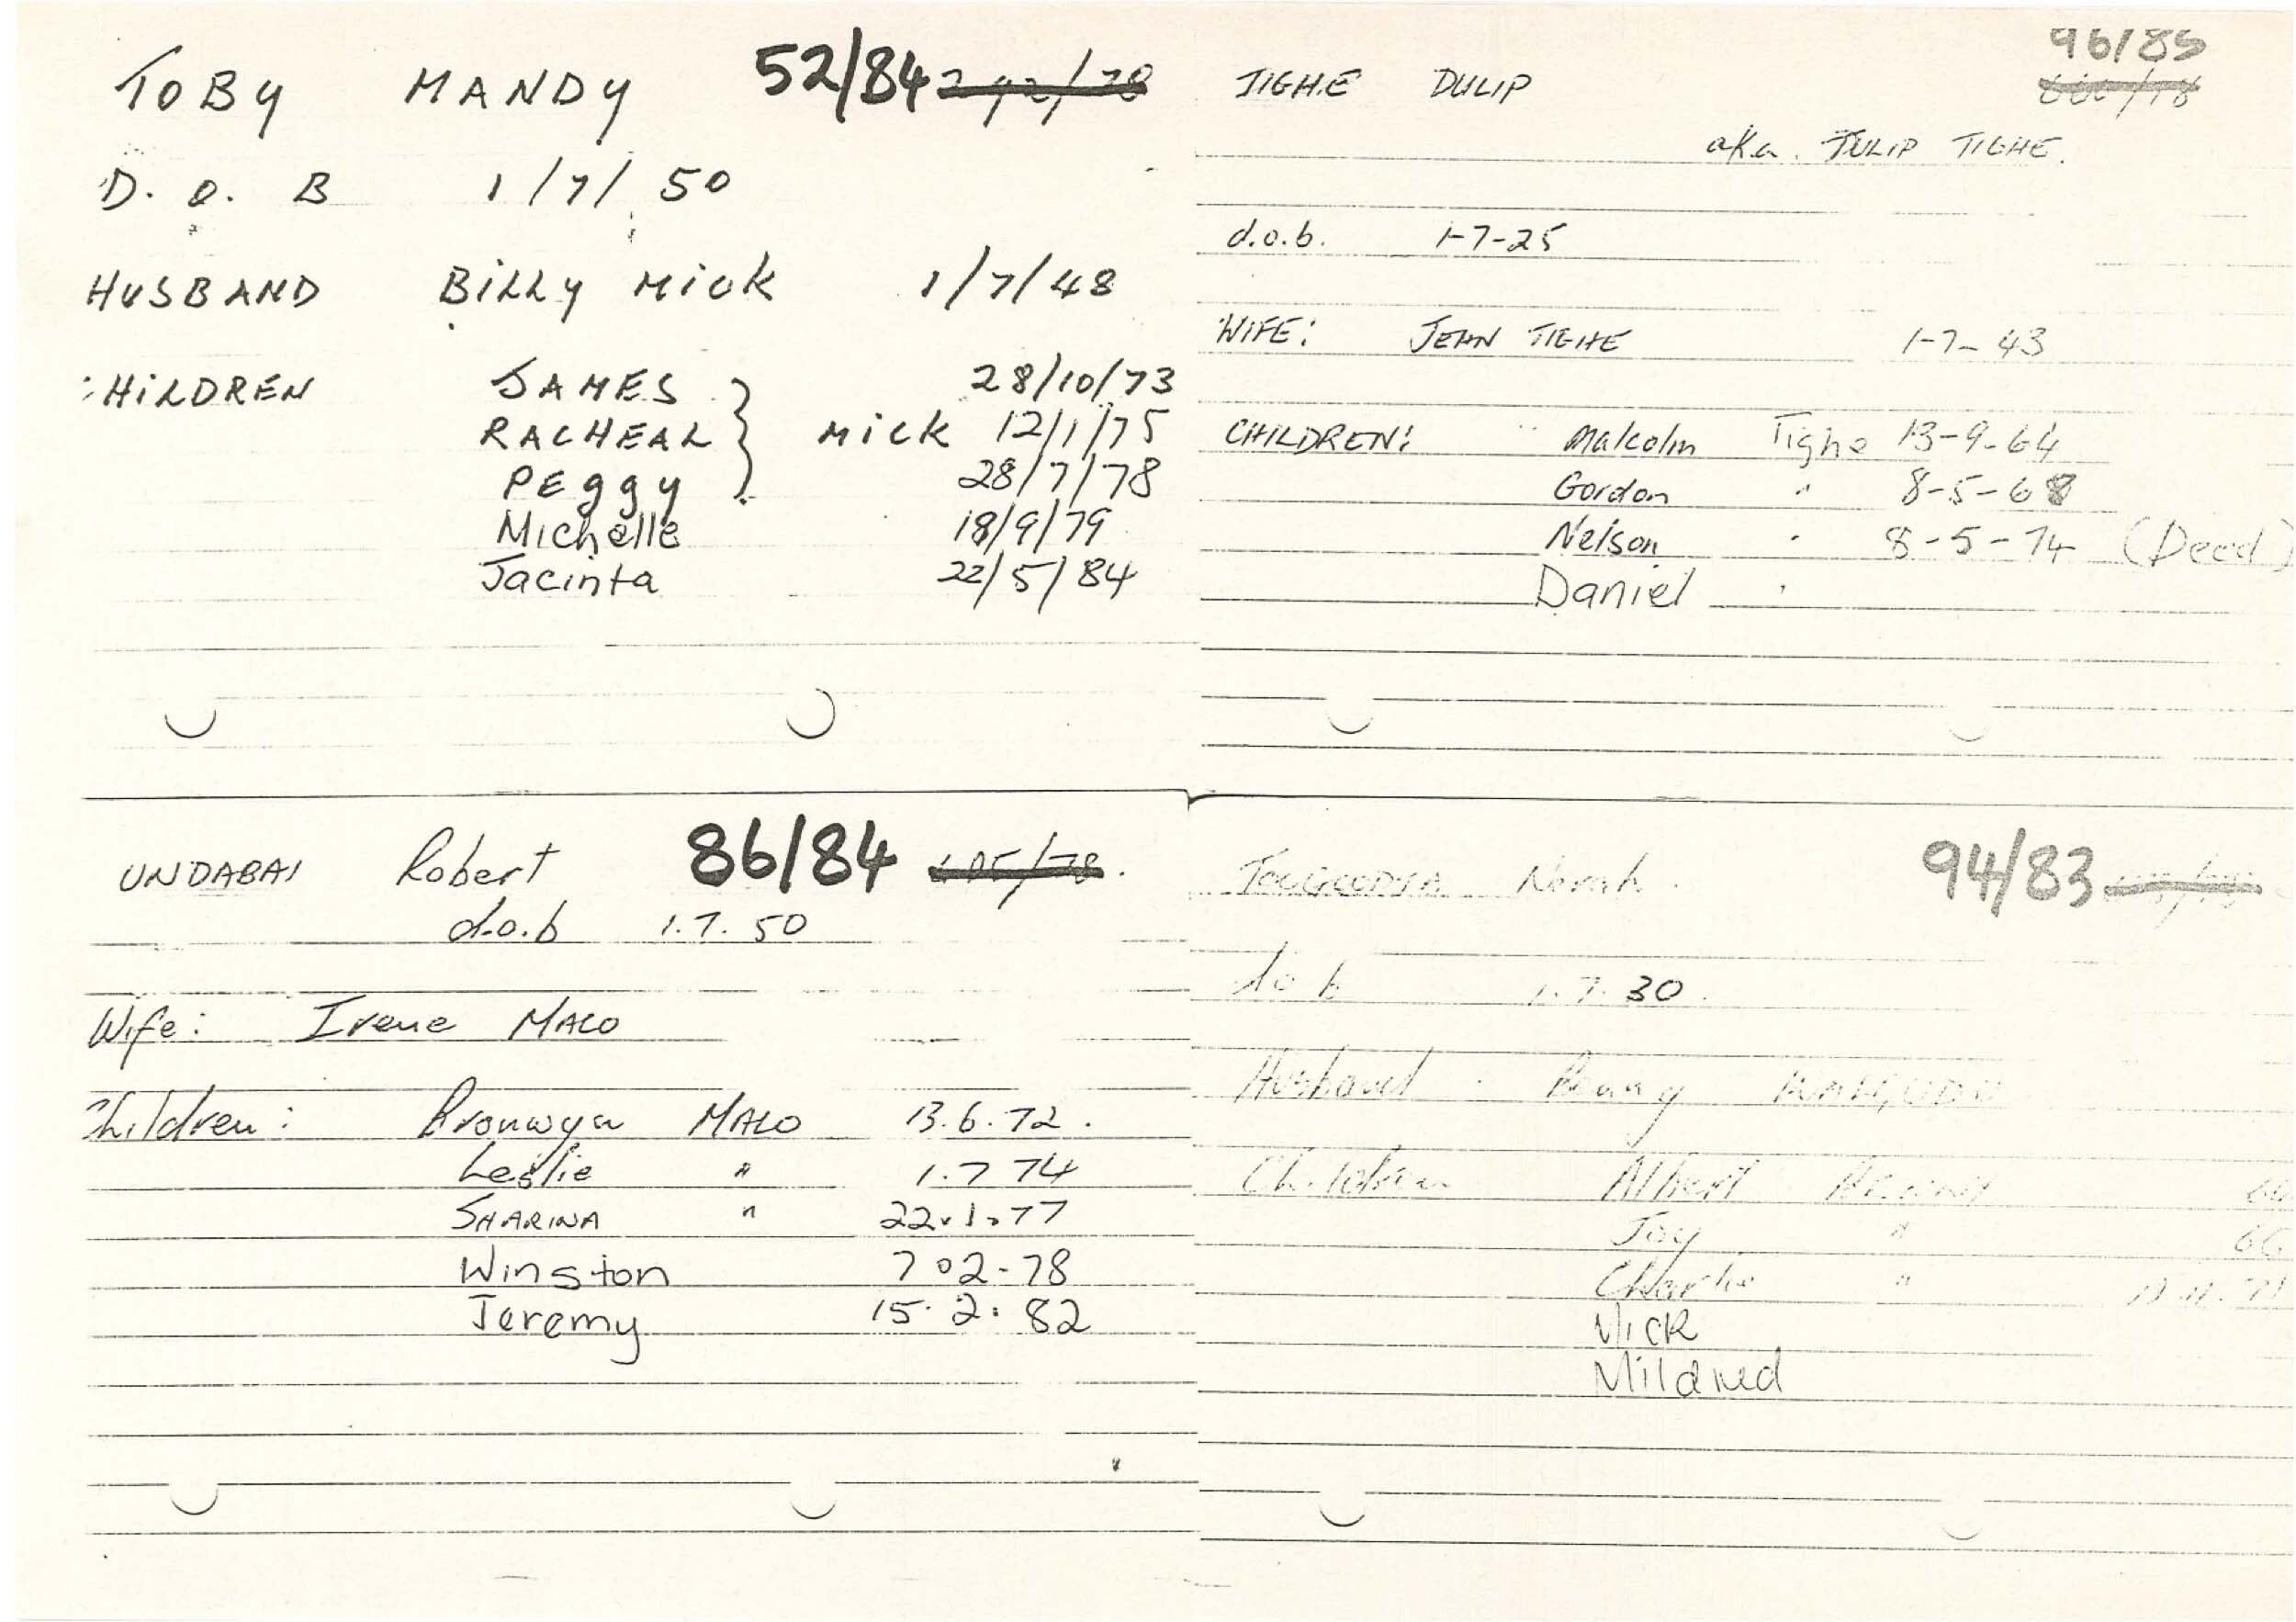 TOBY MANDY 52/84
D. O. B 1/7/50
HUSBAND BILLY MICK 1/7/48
CHILDREN JAMES 28/10/73
RACHEAL MICK 12/1/75
PEggy 28/7/78
Michelle 18/9/79
Jacinta 22/5/84
96/85
TIGHE DULIP
aka. TULIP TIGHE.
d.o.b. 1-7-25
WIFE: JEAN TIGHE 1-7-43
CHILDREN: Malcolm Tighe 13-9-64
Gordon " 8-5-68
Nelson " 8-5-74 (Decd)
Daniel "
UNDABAI Robert 86/84
d.o.b 1.7.50
Wife: Irene MALO
Children: Bronwyn MALO 13.6.72.
Leslie " 1.7 74
SHARINA " 22.1.77
Winston 7 02-78
Jeremy 15.2.82
Norah 94/83
d o b 1.7.30.
Husband: Benny
Children Albert
Joy " 66
Charlie "
Mick
Mildred